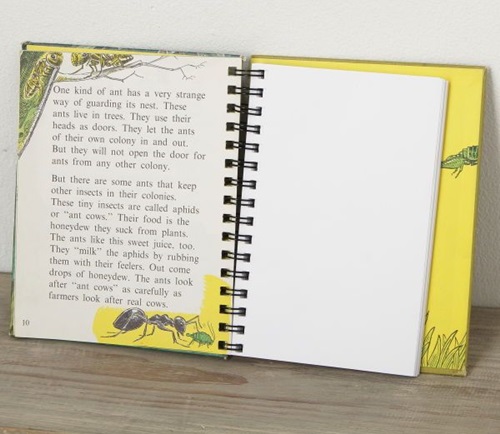 One kind of ant has a very strange
way of guarding its nest. These
ants live in trees. They use their
heads as doors. They let the ants
of their own colony in and out.
But they will not open the door for
ants from any other colony.
But there are some ants that keep
other insects in their colonies.
These tiny insects are called aphids
or “ant cows.” Their food is the
honeydew they suck from plants.
The ants like this sweet juice, too.
They “milk” the aphids by rubbing
them with their feelers. Out come
drops of honeydew. The ants look
after “ant cows” as carefully as
farmers look after real cows.
10